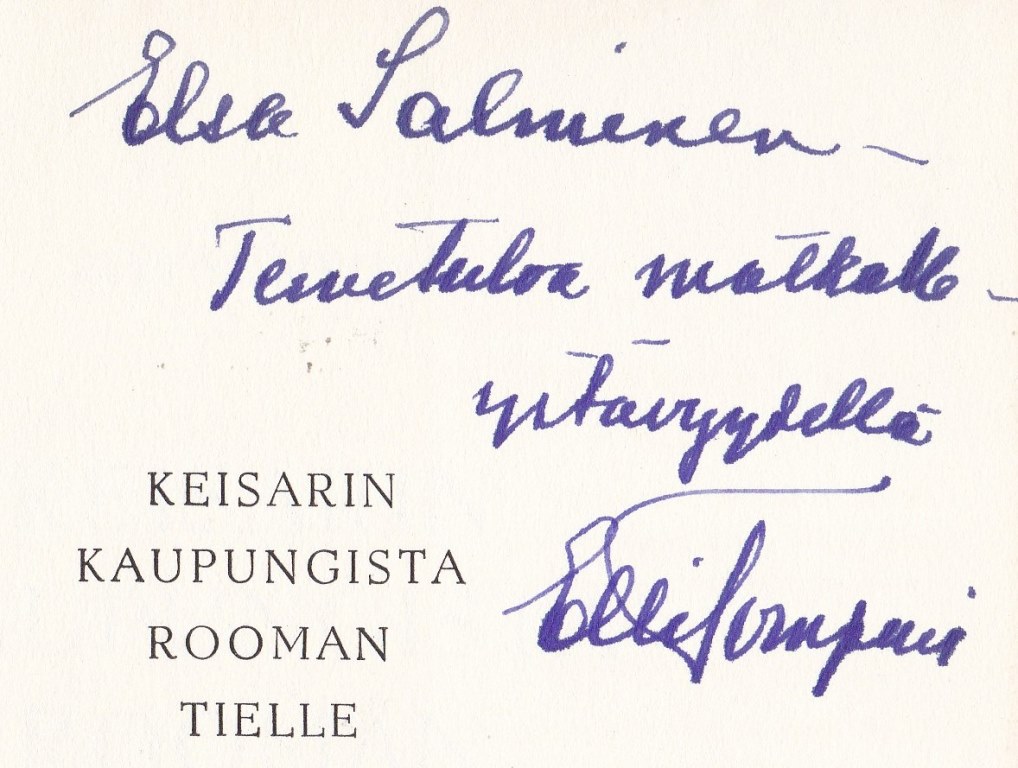 Elsa Salminen –
Tervetuloa matkalle –
ystävyydellä
Elli
KEISARIN
KAUPUNGISTA
ROOMAN
TIELLE